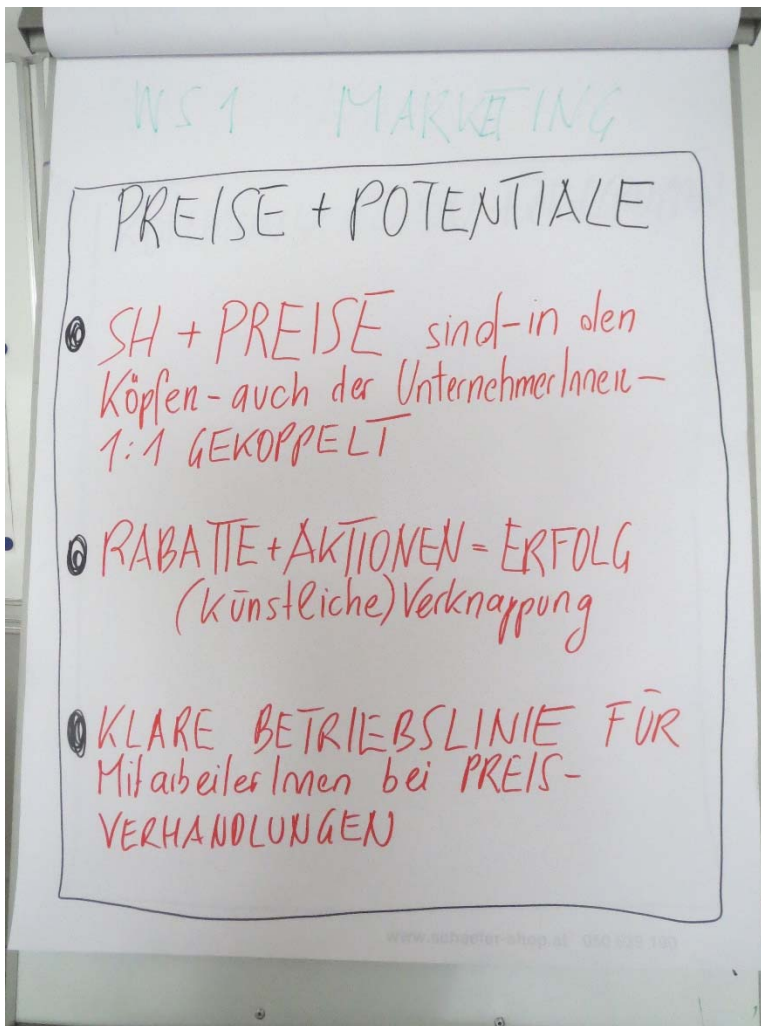 WS1 MARKETING
PREISE + POTENTIALE
SH + PREISE sind-in den
Köpfen-auch der UnternehmerInnen-
1:1 GEKOPPELT
RABATTE + AKTIONEN = ERFOLG
(künstliche) Verknappung
KLARE BETRIEBSLINIE FÜR
MitarbeiterInnen bei PREIS-
VERHANDLUNGEN
www.schaefer-shop.at